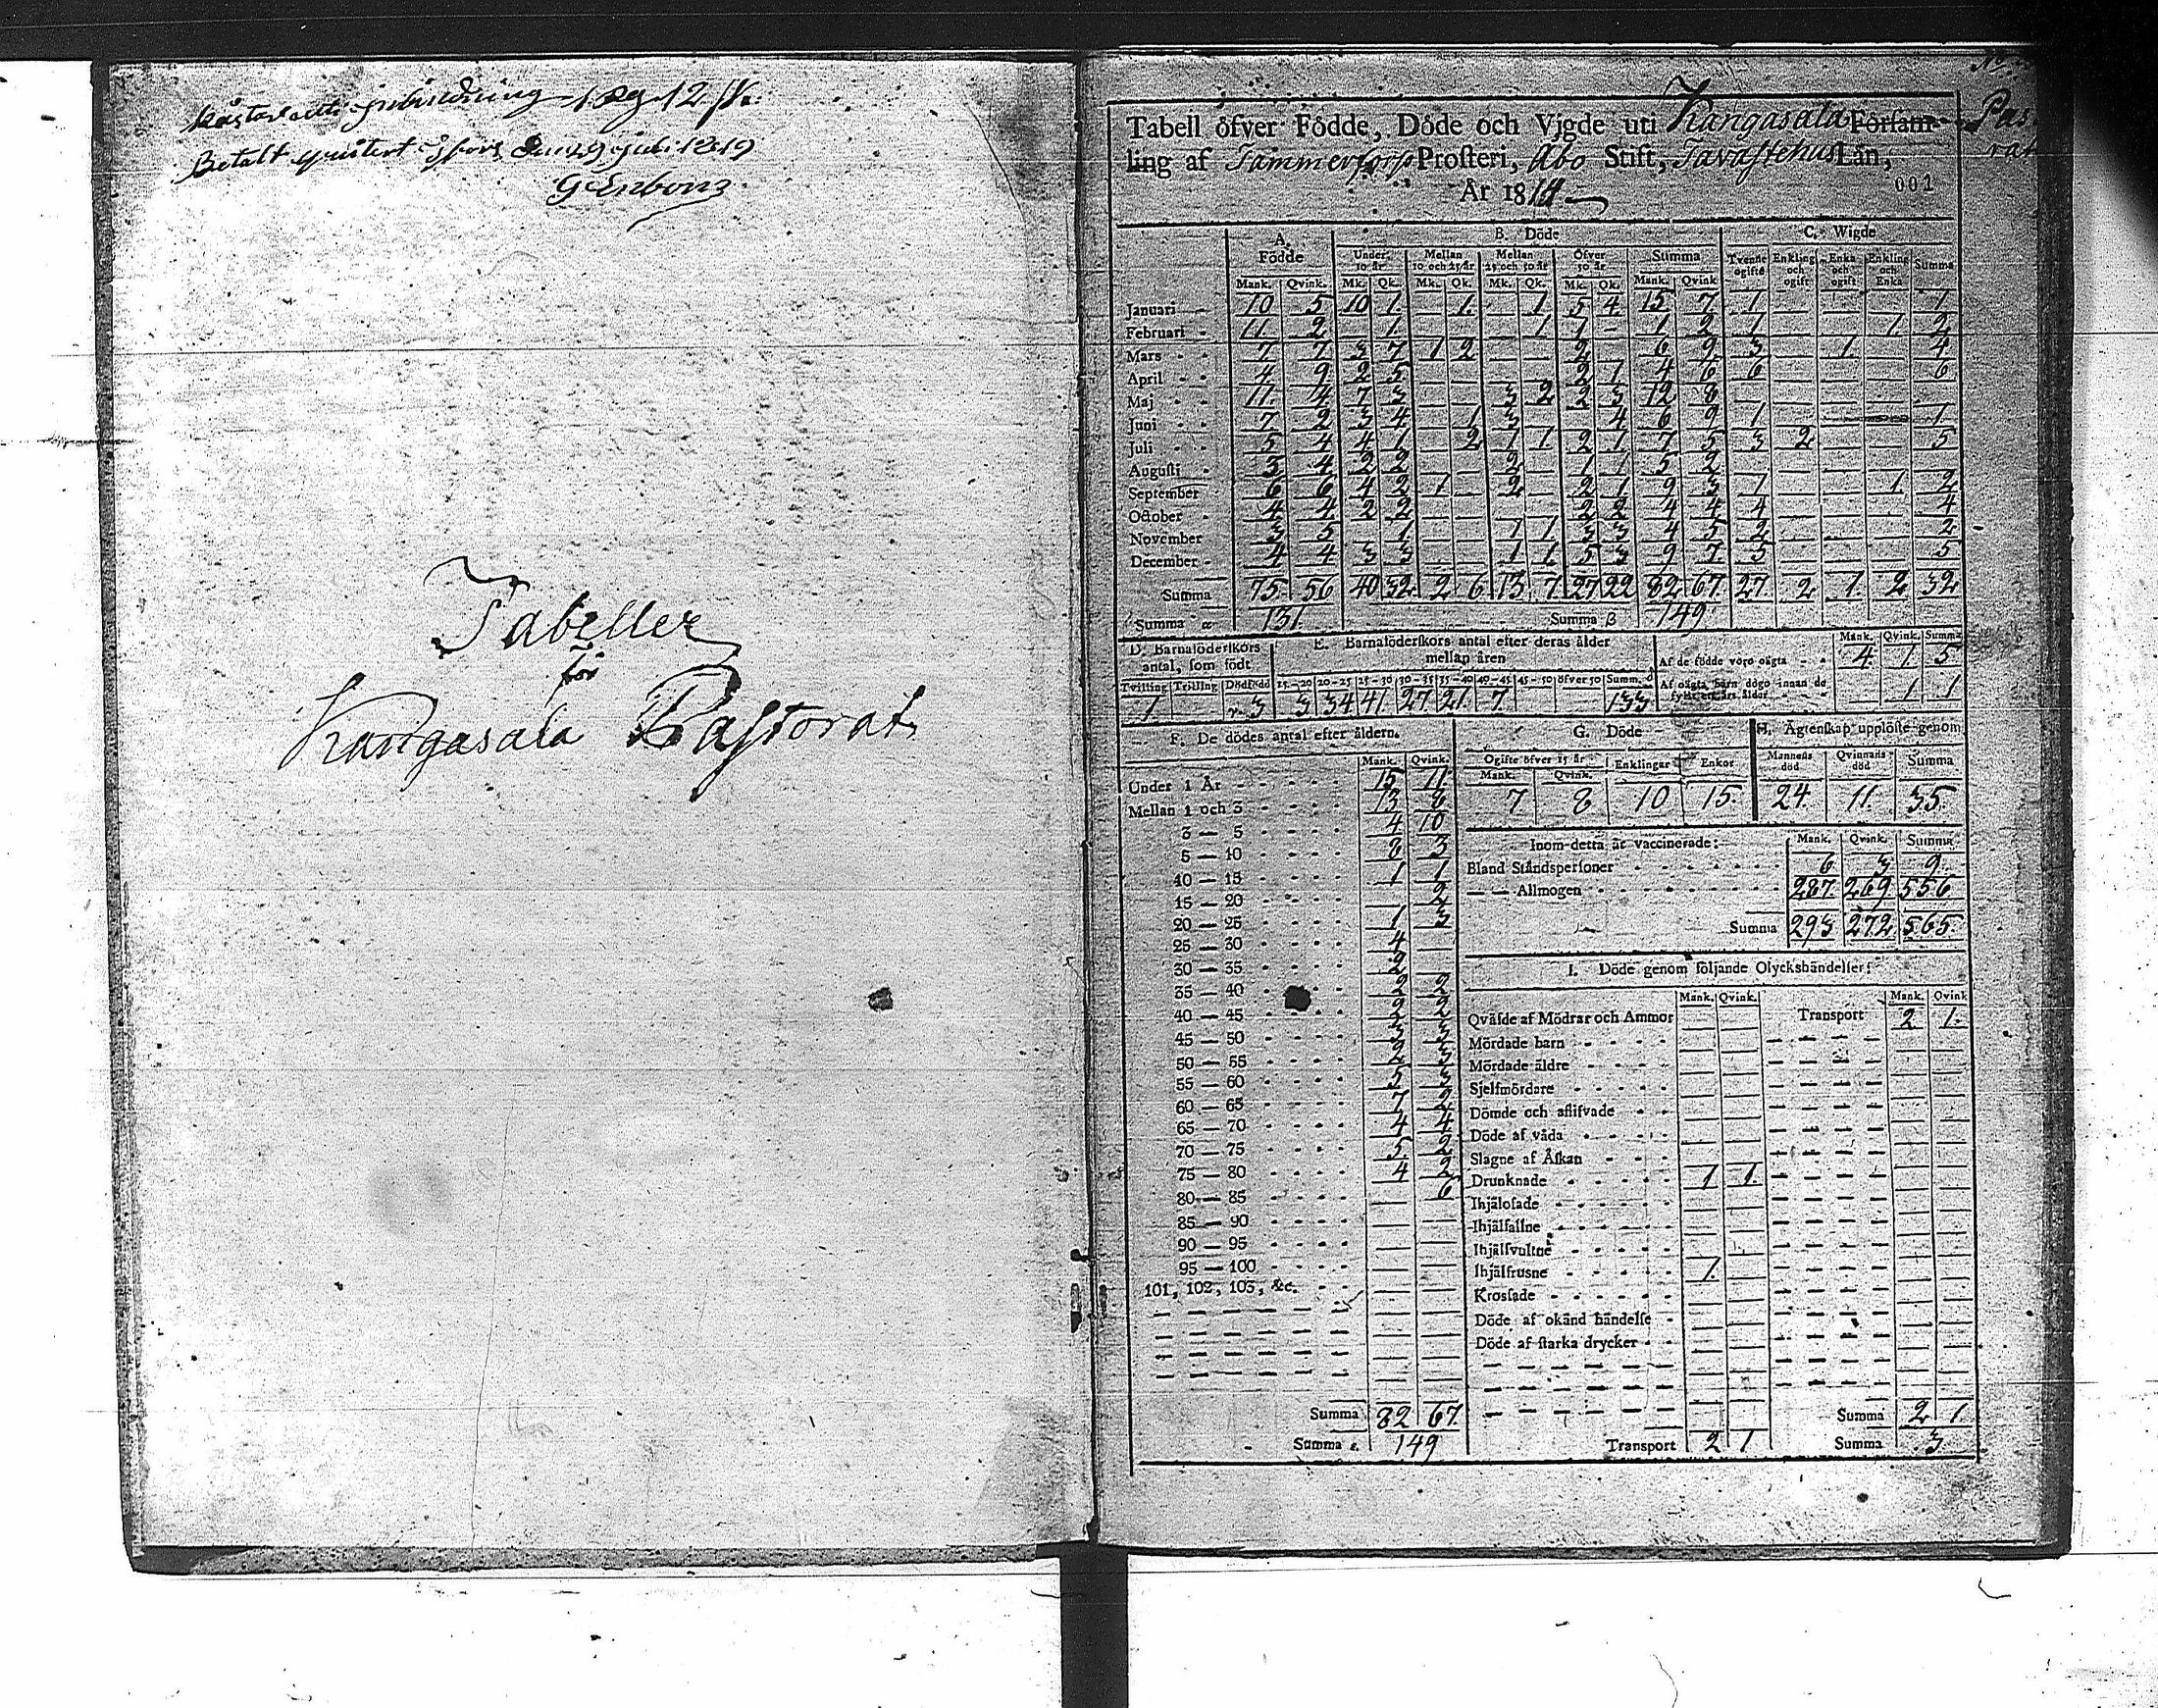 Kåstar att inbindning 1 Rg 12 sk.
Betalt qvitert Åfors den 29 Juli 1819
G Enbom
Tabeller
för
Kangasala Pastorat
Tabell öfver Födde, Döde och Vigde uti Kangasala Försam- Pas
ling af Tammerfors Prosteri, Åbo Stift, Tavastehus Län, rat
År 1814
001
A. Födde B. Döde C. Wigde
Under 10 år Mellan 10 och 25 år Mellan 25 och 50 år Öfver 50 år Summa Tvenne ogifte Enkling och ogift Enka och ogift Enkling och Enka Summa
Mank. Qvink. Mk. Qk. Mk. Qk. Mk. Qk. Mk. Qk. Mank. Qvink
Januari 10 5 10 1 1 1 5 4 15 7 1 1
Februari 11 2 1 1 1 1 2 1 1 2
Mars 7 7 3 7 1 2 2 6 9 3 1 4
April 4 9 2 5 2 1 4 6 6 6
Maj 11 4 7 3 3 2 2 3 12 8
Juni 7 2 3 4 1 3 4 6 9 1 1
Juli 5 4 4 1 2 1 1 2 1 7 5 3 2 5
Augusti 3 4 2 2 2 1 5 2
September 6 6 4 2 1 2 2 1 9 3 1 1 2
October 4 4 2 2 2 2 4 4 4 4
November 3 5 1 1 1 3 3 4 5 2 2
December 4 4 3 3 1 1 5 3 9 7 5 5
Summa 75 56 40 32 2 6 13 7 27 22 82 67 27 2 1 2 32
Summa α 131 Summa β 149
D. Barnaföderskors antal, som födt
Tvilling Trilling Dödfödd
1 3
E. Barnaföderskors antal efter deras ålder mellan åren
15—20 20—25 25—30 30—35 35—40 40—45 45—50 öfver 50 Summ. δ
3 34 41 27 21 7 133
Mank. Qvink. Summa
Af de födde voro oägta 4 1 5
Af oägta barn dögo innan de fyllt ett års ålder 1 1
F. De dödes antal efter åldern.
Mank. Qvink.
Under 1 År 15 11
Mellan 1 och 3 13 8
3 — 5 4 10
5 — 10 8 3
10 — 15 1 1
15 — 20 2
20 — 25 1 3
25 — 30 4
30 — 35 2
35 — 40 2 2
40 — 45 2 2
45 — 50 3 3
50 — 55 2 3
55 — 60 5 3
60 — 65 7 2
65 — 70 4 4
70 — 75 5 2
75 — 80 4 2
80 — 85 6
85 — 90
90 — 95
95 — 100
101, 102, 103, &c.
Summa 82 67
Summa ε. 149
G. Döde
Ogifte öfver 15 år Enklingar Enkor
Mank. Qvink.
7 8 10 15
H. Ägtenskap upplöste genom
Mannens död Qvinnans död Summa
24 11 35
Inom detta år vaccinerade: Mank. Qvink. Summa
Bland Ståndspersoner 6 3 9
— — Allmogen 287 269 556
Summa 293 272 565
I. Döde genom följande Olyckshändelser:
Mank. Qvink. Mank. Qvink
Qväfde af Mödrar och Ammor Transport 2 1
Mördade barn
Mördade äldre
Sjelfmördare
Dömde och aflifvade
Döde af våda
Slagne af Åskan
Drunknade 1 1
Ihjälosade
Ihjälfallne
Ihjälsvultne
Ihjälfrusne 1
Krossade
Döde af okänd händelse
Döde af starka drycker
Summa 2 1
Transport 2 1 Summa 3